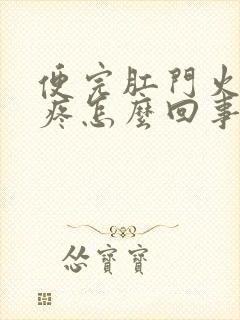 便完肛門火
疼怎麼回事
慫寶寶